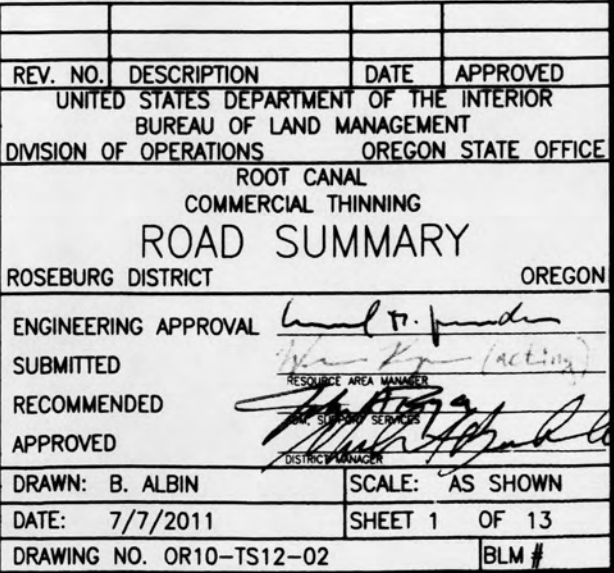 REV. NO. DESCRIPTION DATE APPROVED
UNITED STATES DEPARTMENT OF THE INTERIOR
BUREAU OF LAND MANAGEMENT
DIVISION OF OPERATIONS OREGON STATE OFFICE
ROOT CANAL
COMMERCIAL THINNING
ROAD SUMMARY
ROSEBURG DISTRICT OREGON
ENGINEERING APPROVAL
SUBMITTED (acting)
RESOURCE AREA MANAGER
RECOMMENDED
SUPPORT SERVICES
APPROVED
DISTRICT MANAGER
DRAWN: B. ALBIN SCALE: AS SHOWN
DATE: 7/7/2011 SHEET 1 OF 13
DRAWING NO. OR10-TS12-02 BLM #